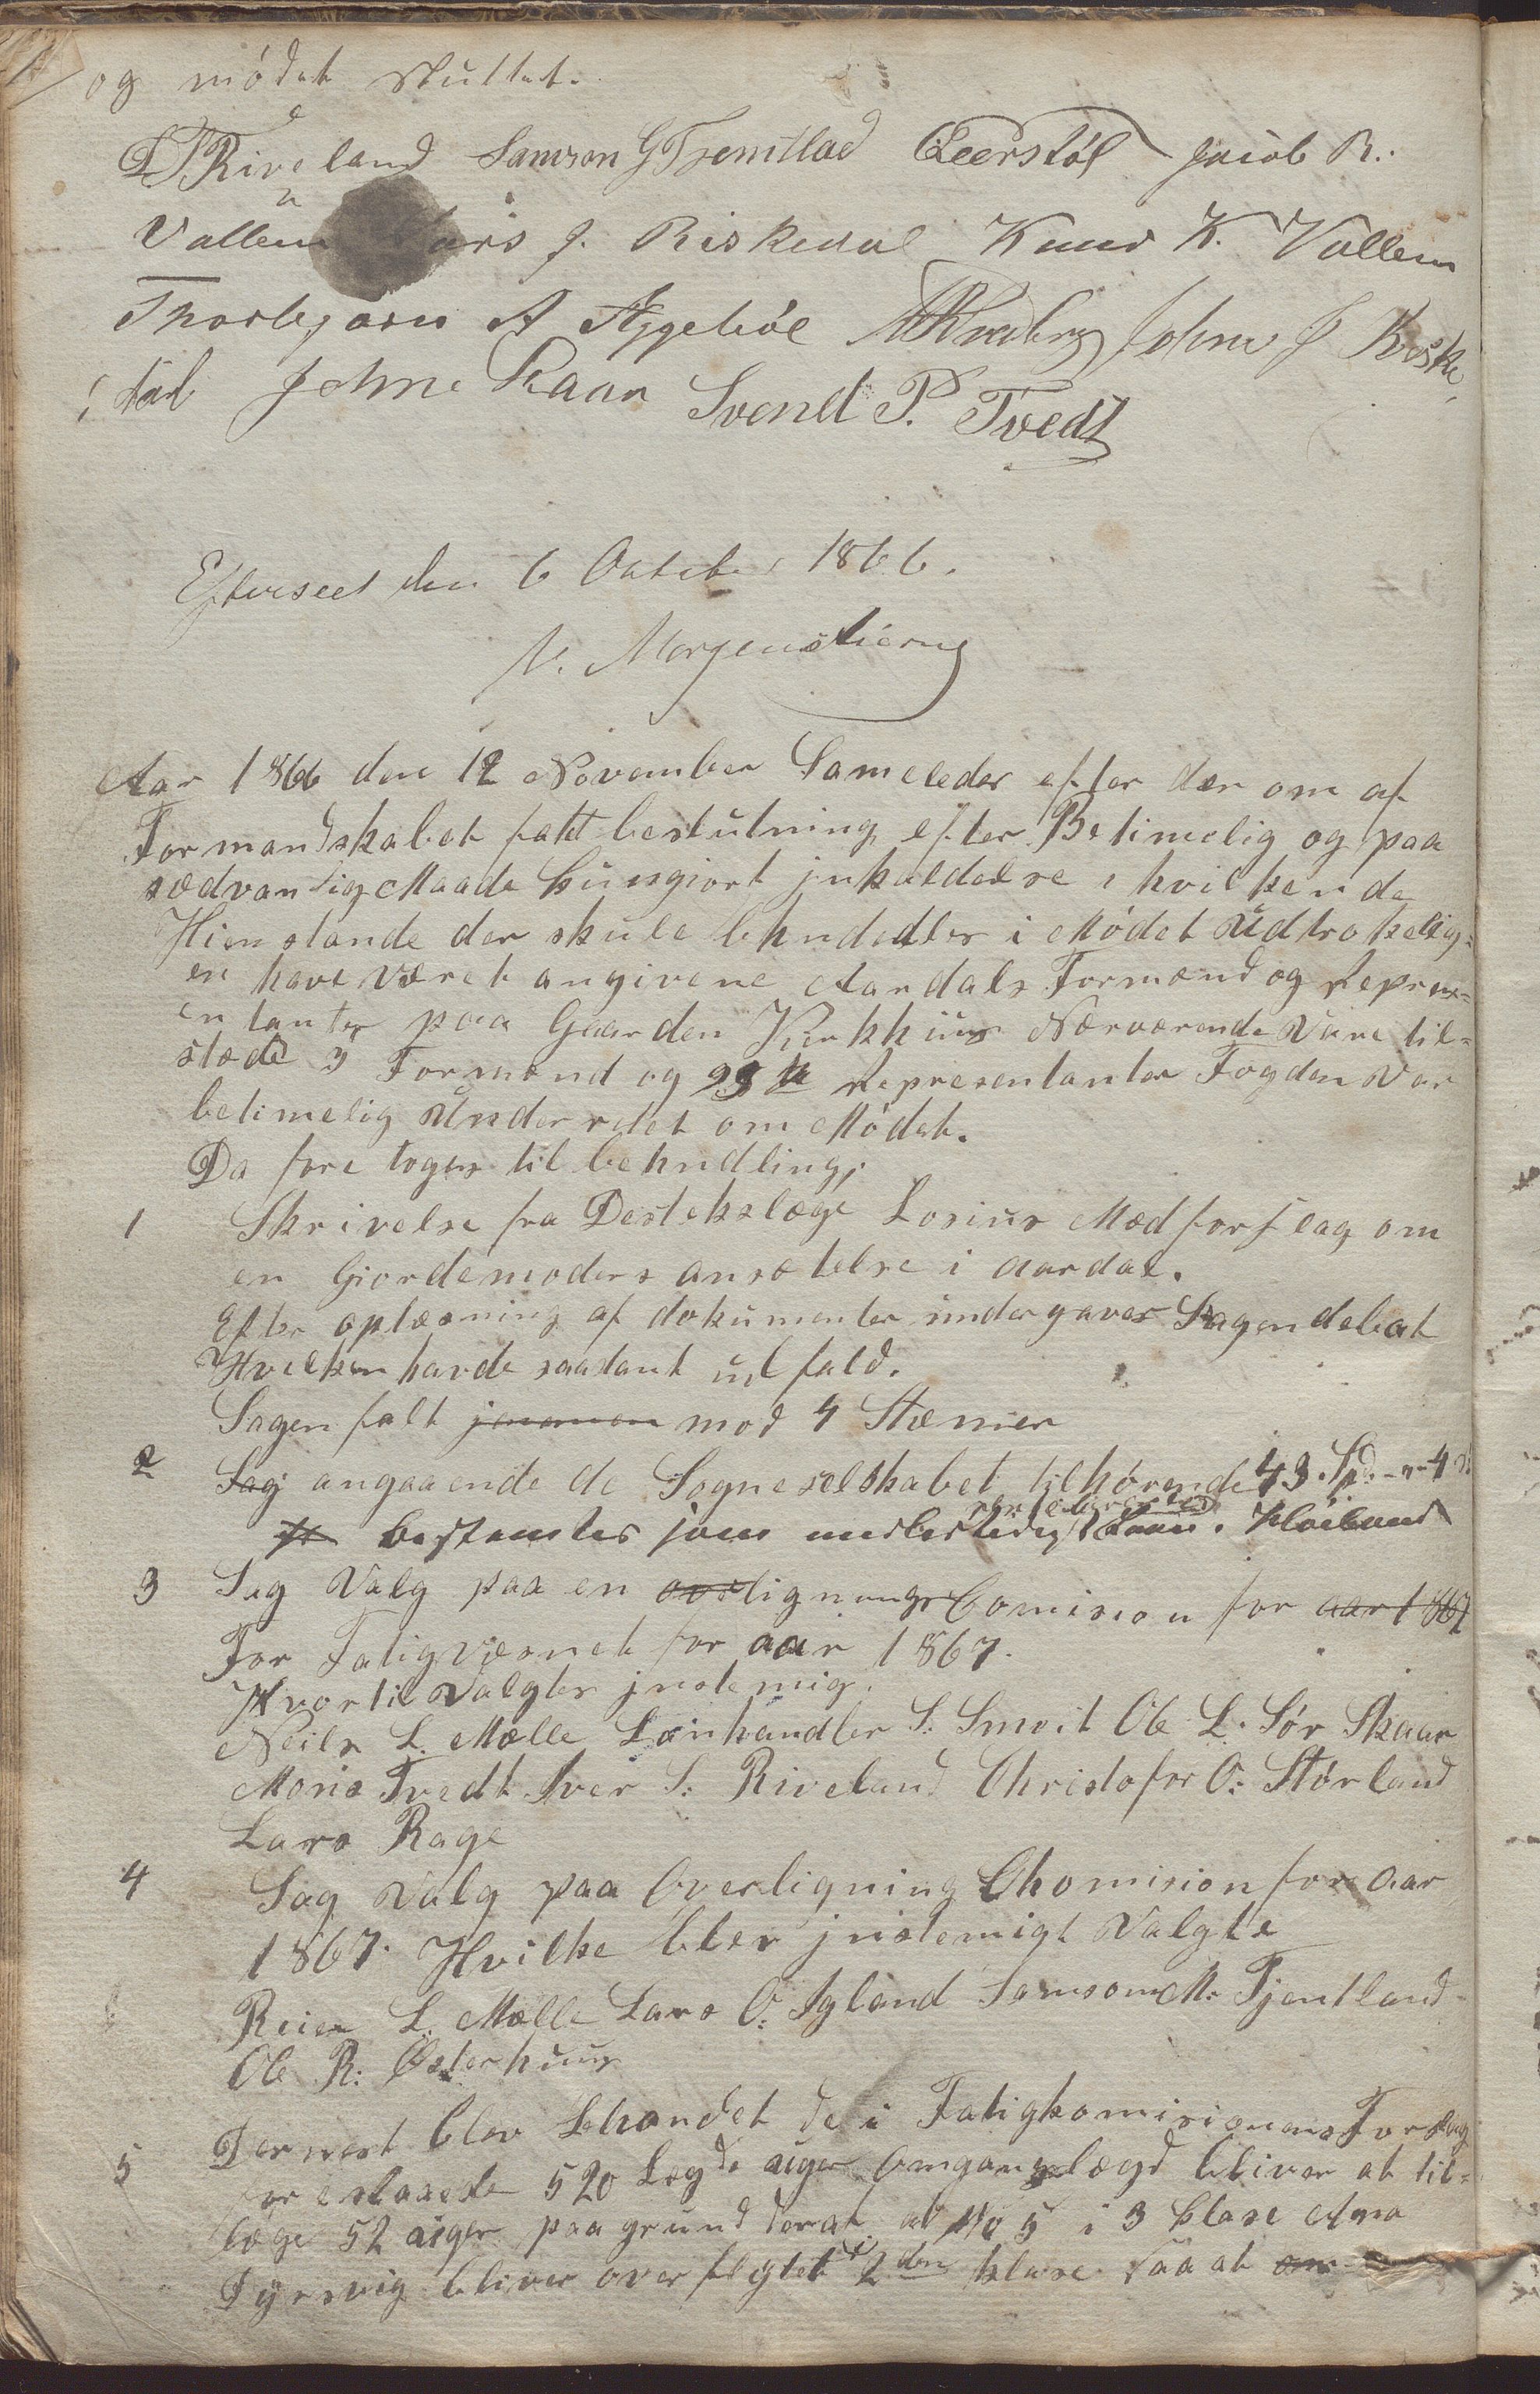 og mödet sluttet.
L T Riveland Samson G Tjentlad Leerstöl Jacob R.
Vallem Lars J. Riskedal Knud K. Vallem
Thorbjørn A Eggeböe John J Riske
dal Johne Skaar Svend P. Tvedt
Efterseet den 6 October 1866.
N. Morgenstierne
Aar 1866 den 12 November Sameledes efter der om af
Formandskabet fatt beslutning, efter Betimelig og paa
sædvanligeMaade kungjort jnkaldelse i hvilken de
Gienstande der skule behndedles i Mödet Udtrokelig=
en have Været angivene Aardals Formænd og Repræs=
entanter paa Gaarden Kirkhuus Nærværende Vare til=
stæde 3 Formænd og Representanter Fogden Var
betimelig Underrdet om Mödet.
Da fore toges til behndling,
1 Skrivelse fra Destekslæge Losius Med forslag om
en Giordemoders ansætelse i Aardal.
Efter oplæsning af dokumenter undergaves Sagen debat
Hvilken havde saadant udfald.
Sagen falt jenemen mod 4 Stæmer
2 Sag angaaende de Sogneselskabet tilhörende 43 Spd. - " - 4 s
bestemtes som Höiland
3 Sag Valg paa en overligningsComision for aar 1867
For Fatigvæsnet for aar 1867.
Hvortil Valgtes jnstemig.
Neils L. Mælle Lænhandler S. Smvit Ole L. Sör Skaar
Mons Tvedt Iver S: Riveland Christofor O: Störland
Lars Rage
4 Sag Valg paa Overligning Chomision for aar
1867. Hvilke blev jnstemigt Valgte
Reier L. Mælle Lars O. Igland Samson M. Tjentland
Ole R: Østerhuus
5 Dernest blev Behandlet de i Fatigkomisionens Forslag
foreslaaede 520 Lægds uger Omgangslægd bliver at til=
læge 52 uger paa grund deraf at No 5 i 3 Clase Ama
Tyrsvig bliver over flytet 2den klase saa at om